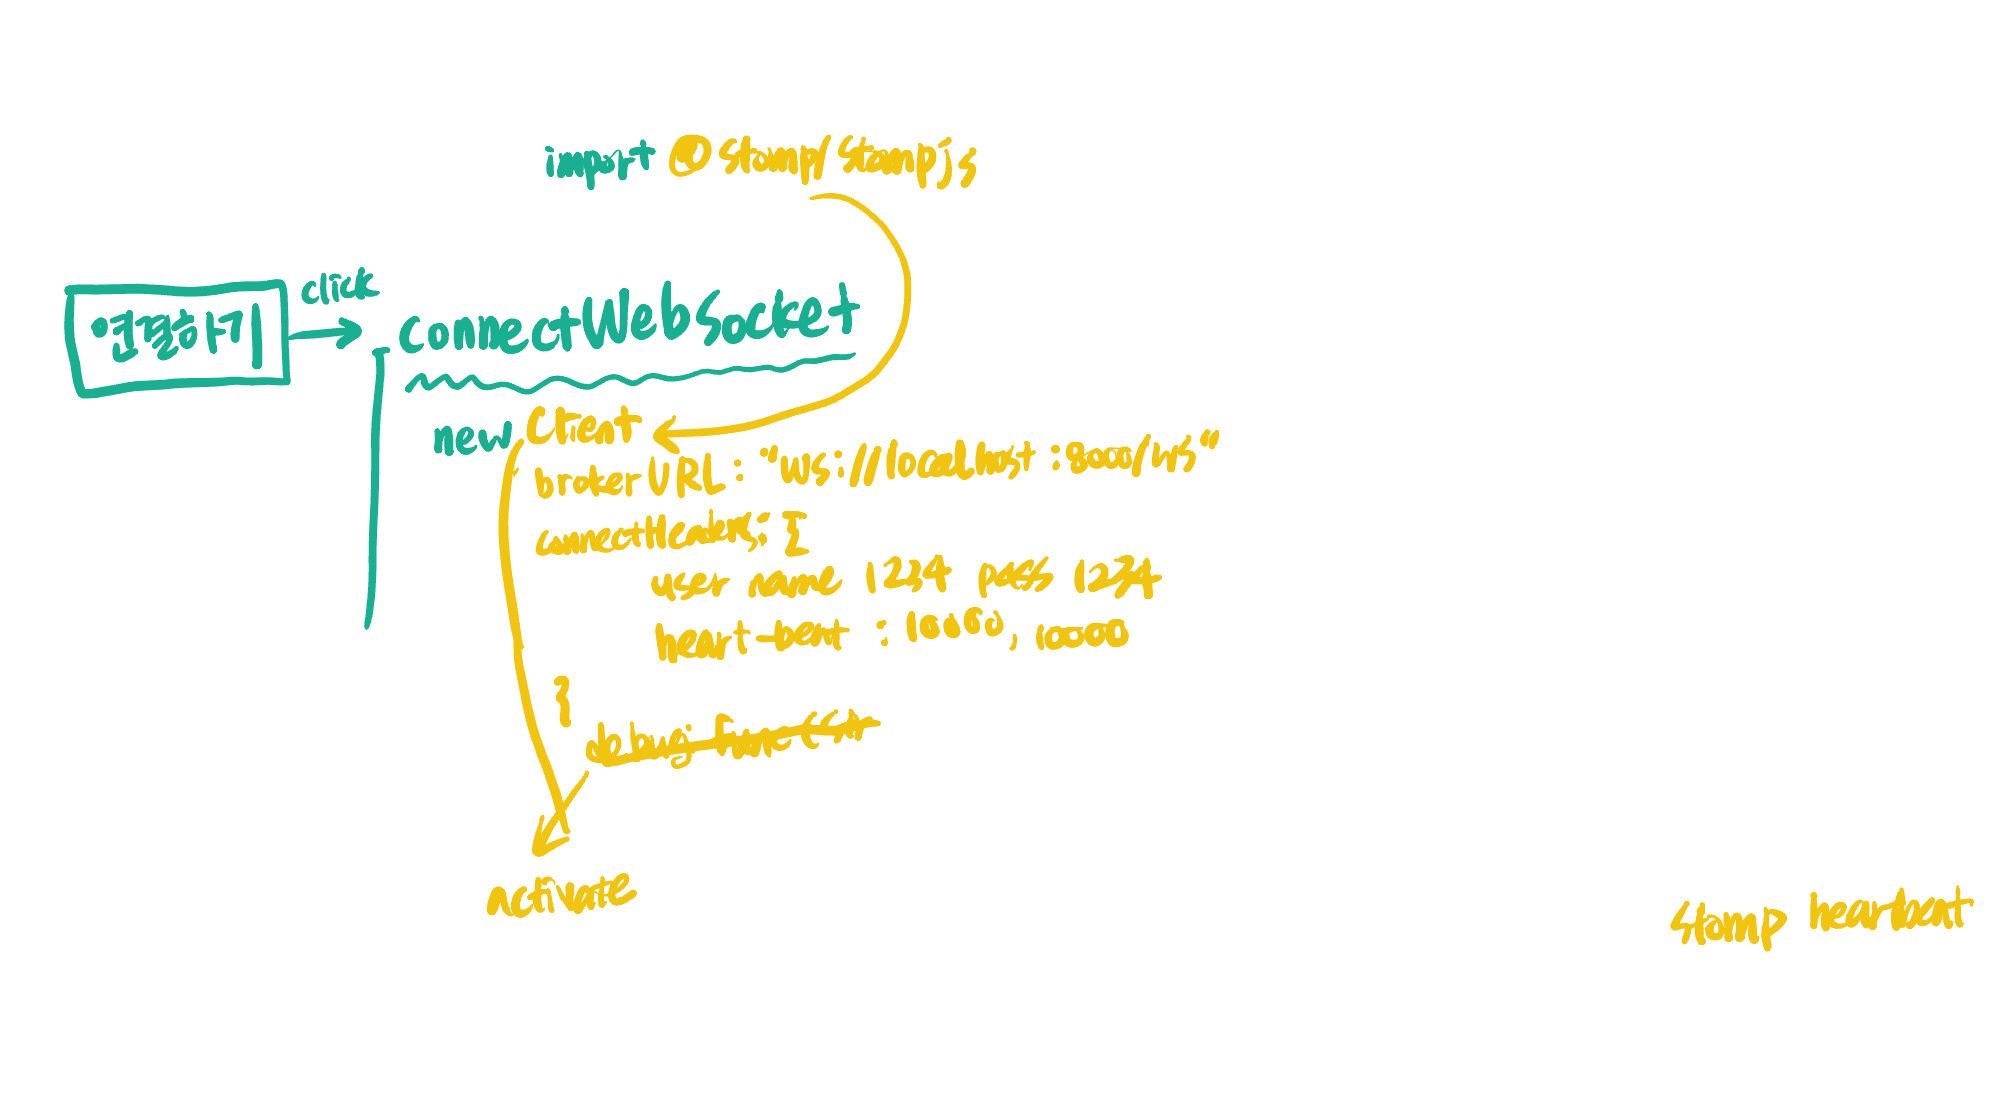 import @stomp/stompjs
click
연결하기
connectWebSocket
new Client
brokerURL: "ws://localhost:8000/ws"
connectHeaders: {
user name 1234 pass 1234
heart-beat : 10000, 10000
}
debug func(str
activate
stomp heartbeat